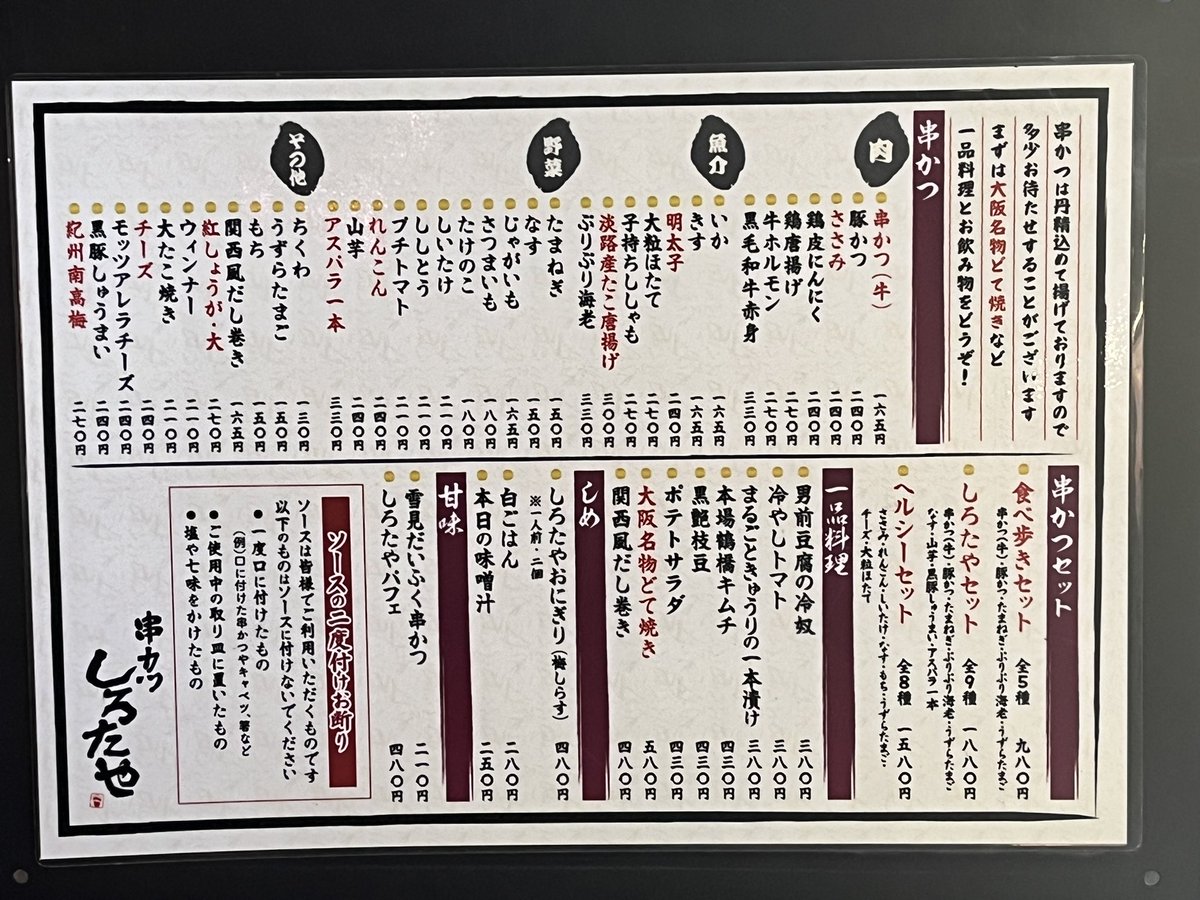 串かつは丹精込めて揚げておりますので
多少お待たせすることがございます
まずは大阪名物どて焼きなど
一品料理とお飲み物をどうぞ！
串かつ
肉
串かつ（牛） 一六五円
豚かつ 二四〇円
ささみ 二四〇円
鶏皮にんにく 二四〇円
鶏唐揚げ 二七〇円
牛ホルモン 二七〇円
黒毛和牛赤身 三三〇円
魚介
いか 一六五円
きす 一六五円
明太子 二四〇円
大粒ほたて 二七〇円
子持ちししゃも 二七〇円
淡路産たこ唐揚げ 三〇〇円
ぷりぷり海老 三三〇円
野菜
たまねぎ 一五〇円
なす 一五〇円
じゃがいも 一六五円
さつまいも 一八〇円
たけのこ 一八〇円
しいたけ 二一〇円
ししとう 二一〇円
プチトマト 二一〇円
れんこん 二四〇円
山芋 二四〇円
アスパラ一本 三三〇円
その他
ちくわ 一三〇円
うずらたまご 一五〇円
もち 一五〇円
関西風だし巻き 一六五円
紅しょうが・大 二七〇円
ウィンナー 二一〇円
大たこ焼き 二一〇円
チーズ 二四〇円
モッツアレラチーズ 二四〇円
黒豚しゅうまい 二四〇円
紀州南高梅 二七〇円
串かつセット
食べ歩きセット 全5種 九八〇円
串かつ（牛）・豚かつ・たまねぎ・ぷりぷり海老・うずらたまご
しろたやセット 全9種 一八八〇円
串かつ（牛）・豚かつ・たまねぎ・ぷりぷり海老・うずらたまご・
なす・山芋・黒豚しゅうまい・アスパラ一本
ヘルシーセット 全8種 一五八〇円
ささみ・れんこん・しいたけ・なす・もち・うずらたまご・
チーズ・大粒ほたて
一品料理
男前豆腐の冷奴 三八〇円
冷やしトマト 三八〇円
まるごときゅうりの一本漬け 三八〇円
本場鶴橋キムチ 四三〇円
黒艶枝豆 四三〇円
ポテトサラダ 四三〇円
大阪名物どて焼き 五八〇円
関西風だし巻き 四八〇円
しめ
しろたやおにぎり（梅しらす） 四八〇円
※一人前・二個
白ごはん 二八〇円
本日の味噌汁 二五〇円
甘味
雪見だいふく串かつ 二一〇円
しろたやパフェ 四八〇円
ソースの二度付けお断り
ソースは皆様でご利用いただくものです
以下のものはソースに付けないでください
●一度口に付けたもの
（例）口に付けた串かつやキャベツ、箸など
●ご使用中の取り皿に置いたもの
●塩や七味をかけたもの
串カツ
しろたや